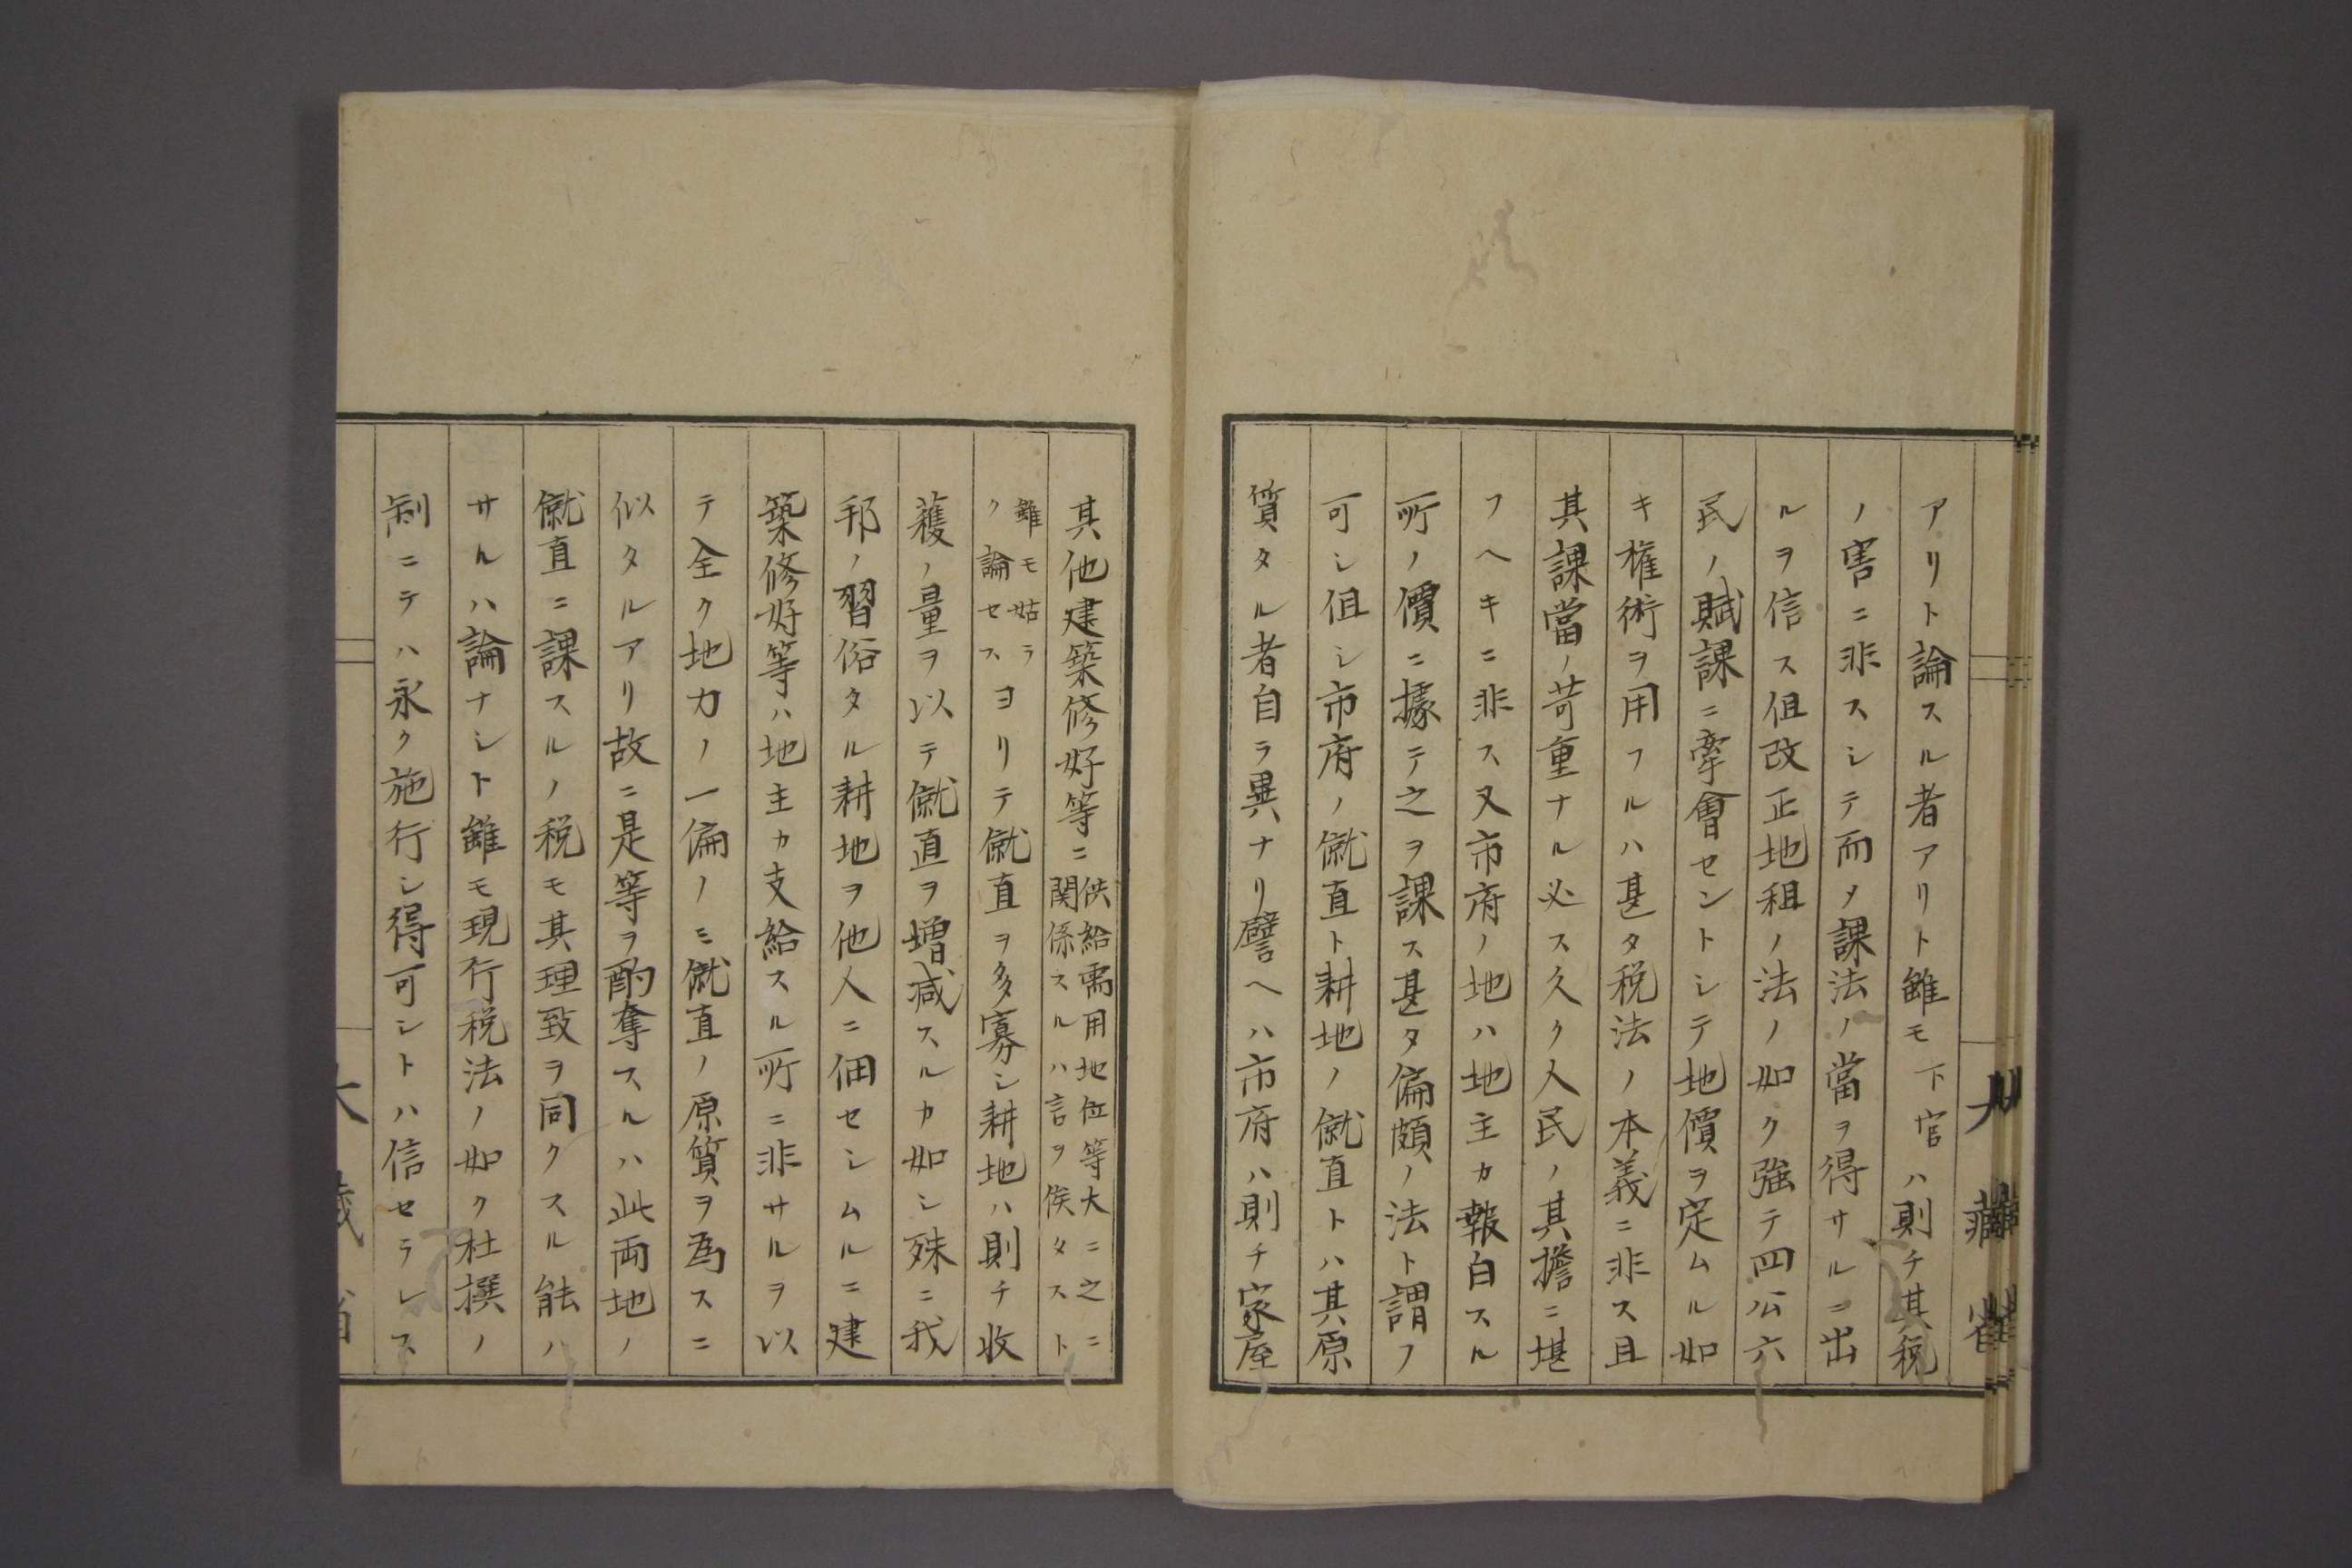 アリト論スル者アリト雖モ下官ハ則チ其税
ノ害ニ非スシテ而メ課法ノ當ヲ得サルニ出
ルヲ信ス伹改正地租ノ法ノ如ク強テ四公六
民ノ賦課ニ牽會セントシテ地價ヲ定ムル如
キ権術ヲ用フルハ甚タ税法ノ本義ニ非ス且
其課當ノ苛重ナル必ス久ク人民ノ其擔ニ堪
フヘキニ非ス又市府ノ地ハ地主カ報白スル
所ノ價ニ據テ之ヲ課ス甚タ偏頗ノ法ト謂フ
可シ伹シ市府ノ僦直ト耕地ノ僦直トハ其原
質タル者自ラ異ナリ譬ヘハ市府ハ則チ家屋
其他建築修好等ニ供給需用地位等大ニ之ニ
関係スルハ言ヲ俟タスト
雖モ姑ラ
ク論セスヨリテ僦直ヲ多寡シ耕地ハ則チ收
穫ノ量ヲ以テ僦直ヲ増減スルカ如シ殊ニ我
邦ノ習俗タル耕地ヲ他人ニ佃セシムルニ建
築修好等ハ地主カ支給スル所ニ非サルヲ以
テ全ク地力ノ一偏ノミ僦直ノ原質ヲ為スニ
似タルアリ故ニ是等ヲ酌奪スルハ此両地ノ
僦直ニ課スルノ税モ其理致ヲ同クスル能ハ
サルハ論ナシト雖モ現行税法ノ如ク杜撰ノ
制ニテハ永ク施行シ得可シトハ信セラレス
大藏省